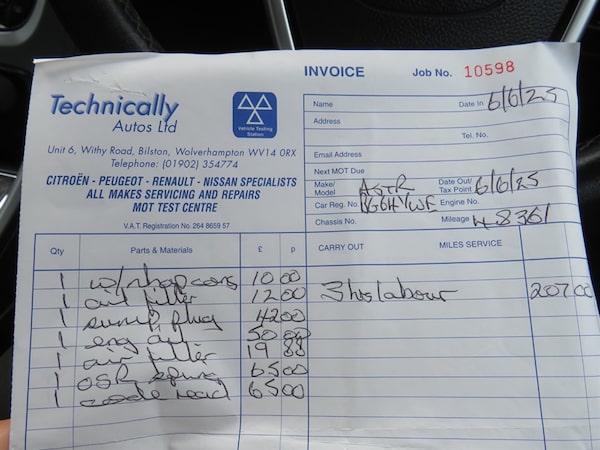 INVOICE Job No. 10598
Technically
Autos Ltd
Vehicle Testing
Station
Unit 6, Withy Road, Bilston, Wolverhampton WV14 0RX
Telephone: (01902) 354774
CITROËN - PEUGEOT - RENAULT - NISSAN SPECIALISTS
ALL MAKES SERVICING AND REPAIRS
MOT TEST CENTRE
V.A.T. Registration No. 264 8659 57
Name Date In 6/6/25
Address
Tel. No.
Email Address
Next MOT Due
Make/
Model ASTR Date Out/
Tax Point 6/6/25
Car Reg. No. Engine No.
Chassis No. Mileage 48361
Qty Parts & Materials £ p CARRY OUT MILES SERVICE
1 w/shop cons 10 00
1 filter 12 00 3 hrs labour 207.00
1 sump plug 42 00
1 eng oil 50 00
1 air filter 19
1 OSR spring 65 00
1 code read 65 00